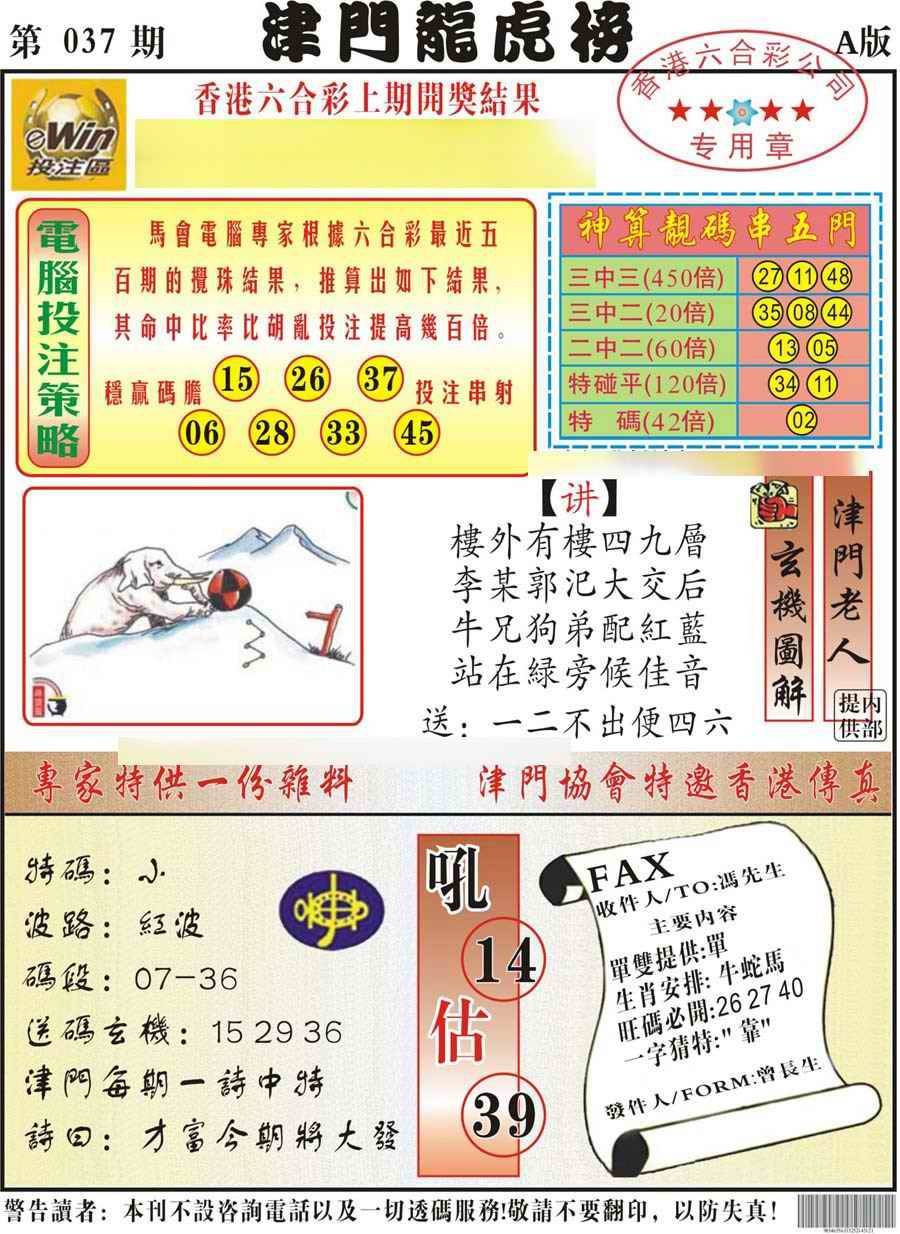 第 037 期
津門龍虎榜
A版
eWin
投注區
香港六合彩上期開獎結果
香港六合彩公司
专用章
電腦投注策略
馬會電腦專家根據六合彩最近五
百期的攪珠結果，推算出如下結果，
其命中比率比胡亂投注提高幾百倍。
穩贏碼膽 15 26 37 投注串射
06 28 33 45
神算靚碼串五門
三中三(450倍) 27 11 48
三中二(20倍) 35 08 44
二中二(60倍) 13 05
特碰平(120倍) 34 11
特 碼(42倍) 02
【讲】
樓外有樓四九層
李某郭汜大交后
牛兄狗弟配紅藍
站在緑旁候佳音
送：一二不出便四六
玄機圖解
津門老人
内部提供
專家特供一份雜料
津門協會特邀香港傳真
特碼：小
波路：紅波
碼段：07-36
送碼玄機：15 29 36
津門每期一詩中特
詩曰：才富今期將大發
吼
14
估
39
FAX
收件人/TO:馮先生
主要内容
單雙提供:單
生肖安排: 牛蛇馬
旺碼必開:26 27 40
一字猜特:" 靠"
發件人/FORM:曾長生
警告讀者：本刊不設咨詢電話以及一切透碼服務!敬請不要翻印，以防失真！